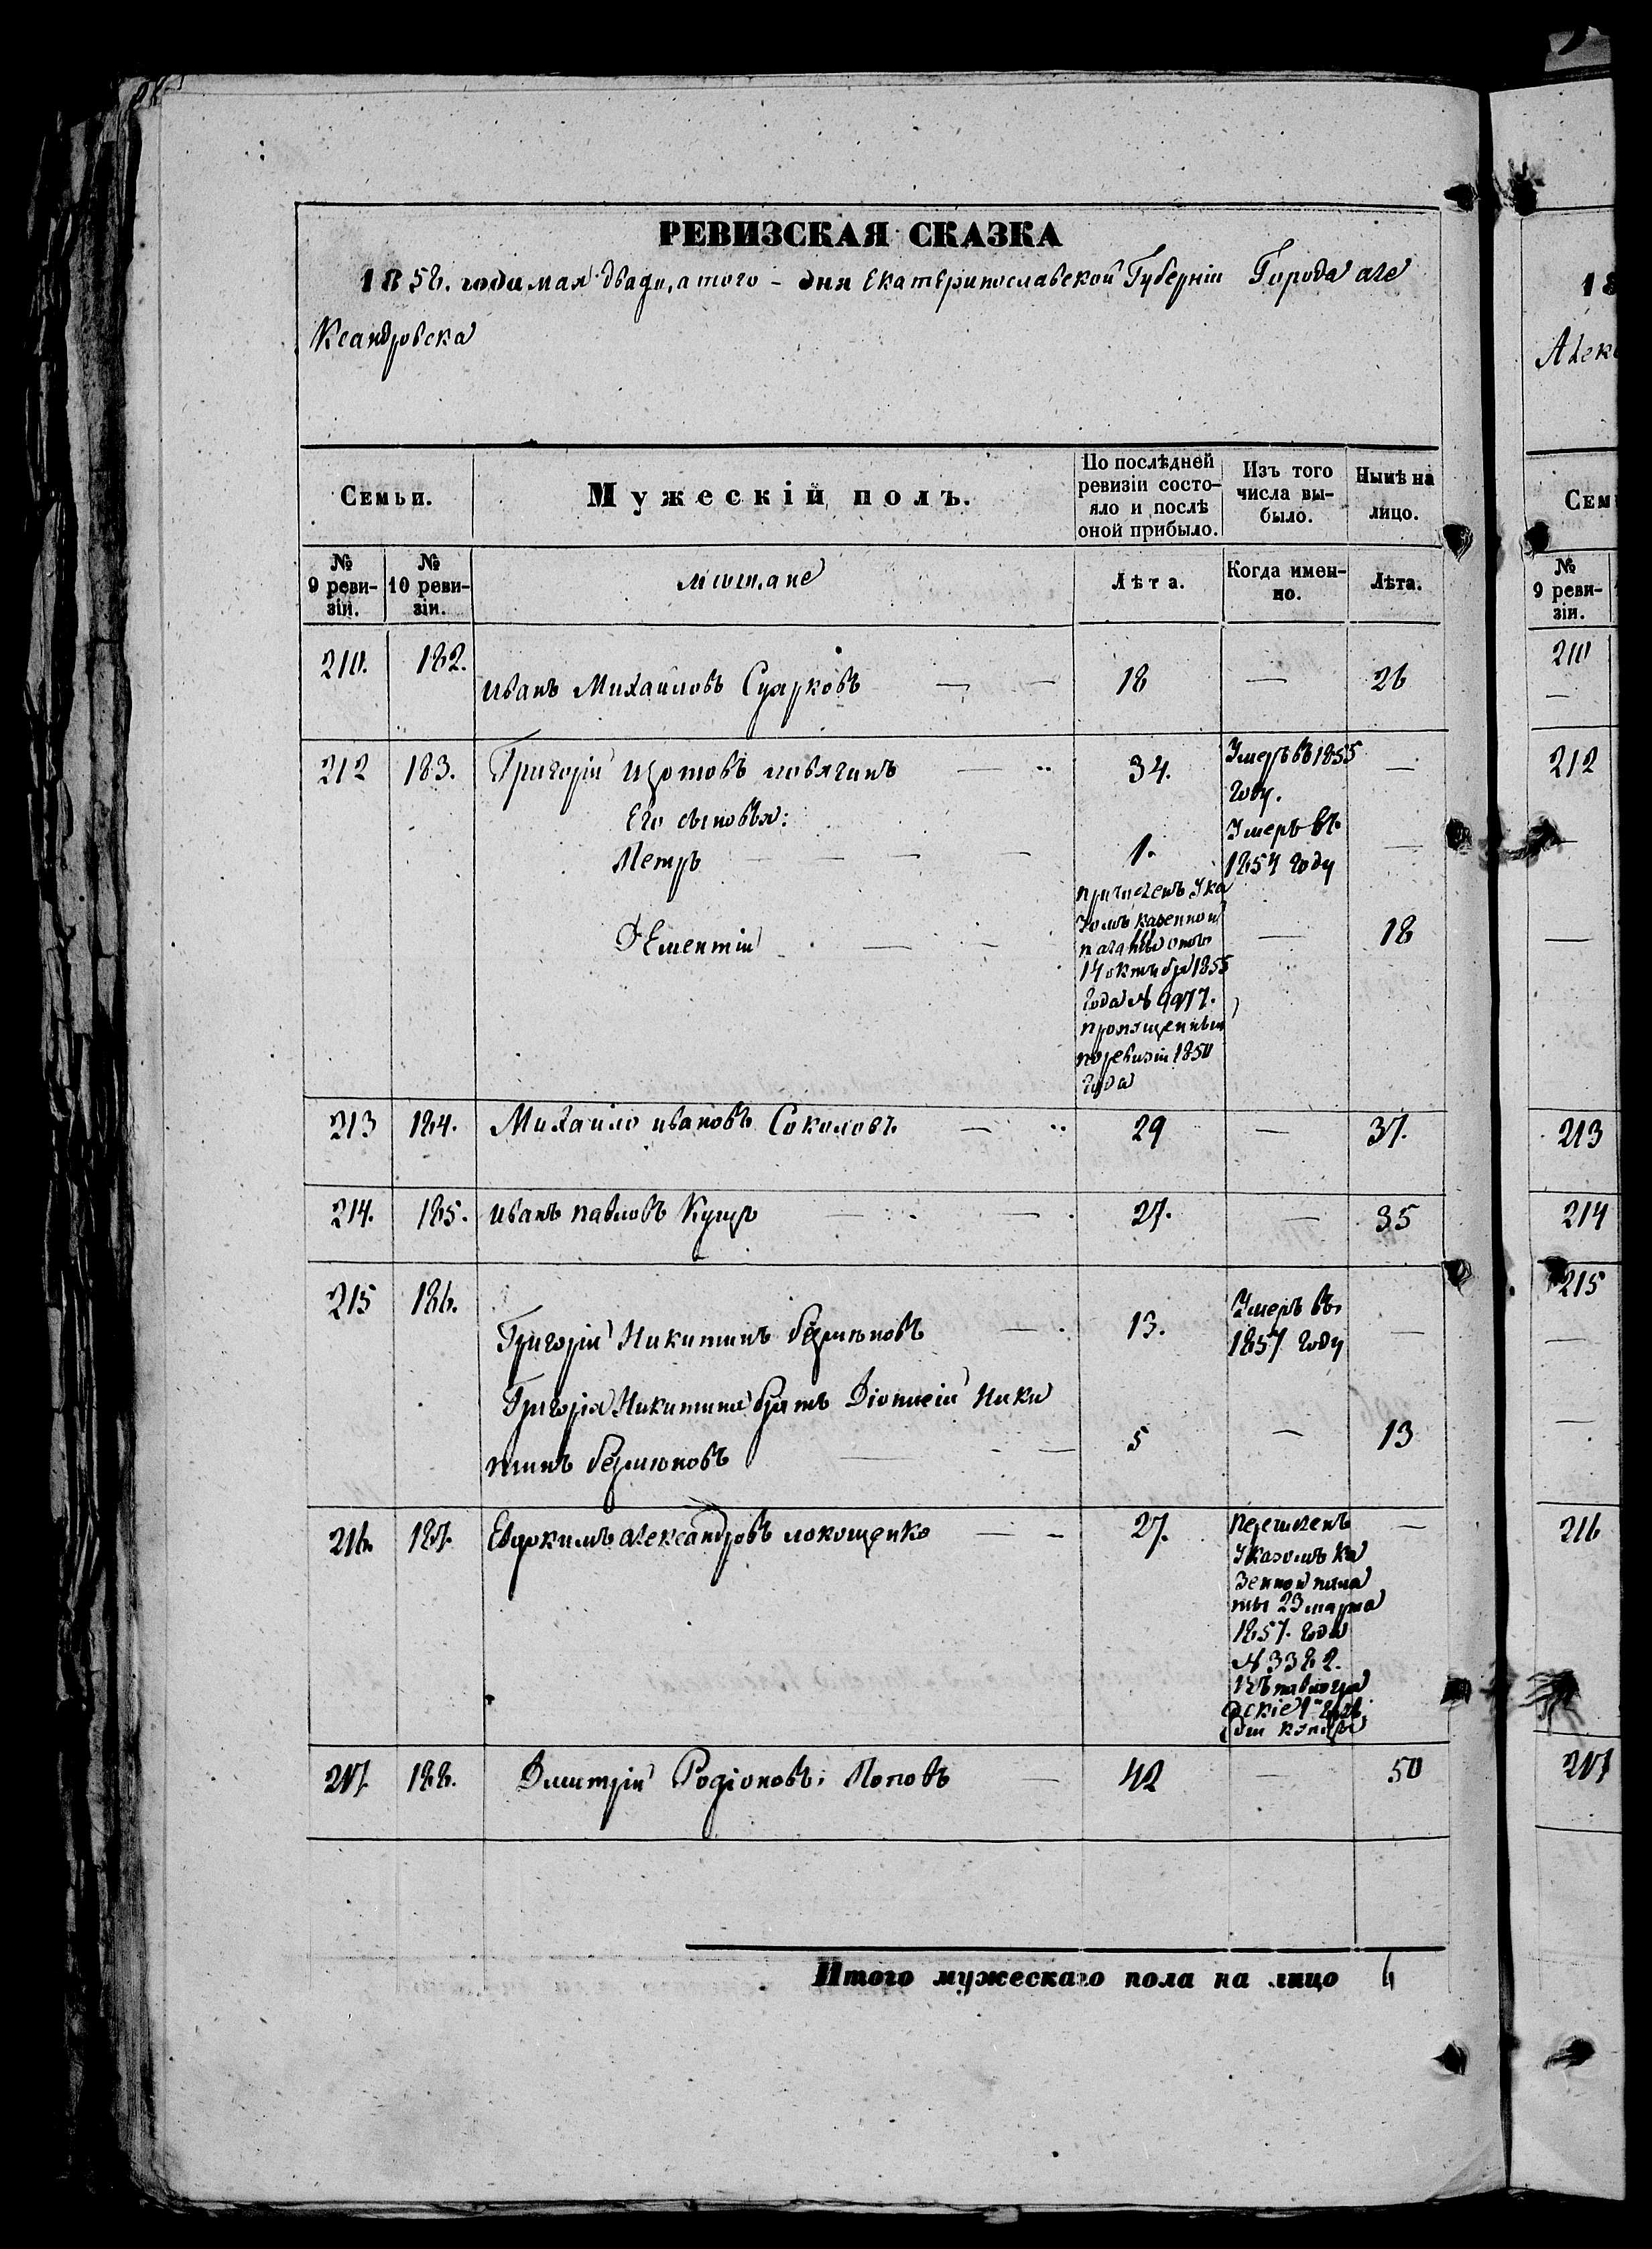 РЕВИЗСКАЯ СКАЗКА
1858. года мая двадцатого - дня Екатеринославской Губерніи Города але
ксандровска
Семьи.
Мужескій полъ.
По послѣдней
ревизіи состо-
яло и послѣ
оной прибыло.
Изъ того
числа вы-
было.
Нынѣ на
лицо.
№
9 реви-
зіи.
№
10 реви-
зіи.
мѣщане
Лѣта.
Когда имен-
но.
Лѣта.
210. 182. иванъ Михайловъ 18 — 26
212 183. Григорій 34. Умеръ въ 1855 —
году.
Его сыновья:
Петръ 1. Умеръ въ —
1854 году
Дементій — 18
причисленъ Ука
зомъ казенной
палаты отъ
14 октября 1855
года № 9977.
пропущенный
по ревизіи 1850
года
213 184. Михайло ивановъ Соколовъ 29 — 37.
214. 185. иванъ павловъ 27. — 35
215 186. Григорій Никитинъ 13. Умеръ въ —
1857 году
Григорія Никитина братъ Діонисій Ники
тинъ 5 — 13
216. 187. Евдокимъ александровъ локощенко 27. —
перечисленъ
Указомъ ка
зенной пала
ты 23 марта
1857. года
№ 3382.
въ павлогра
дскіе
217 188. Дмитрій Родіоновъ Поповъ 42 — 50
Итого мужескаго пола на лицо 6
18
Алекс
Сем
№
9 реви-
зіи.
210
212
213
214
215
216
217